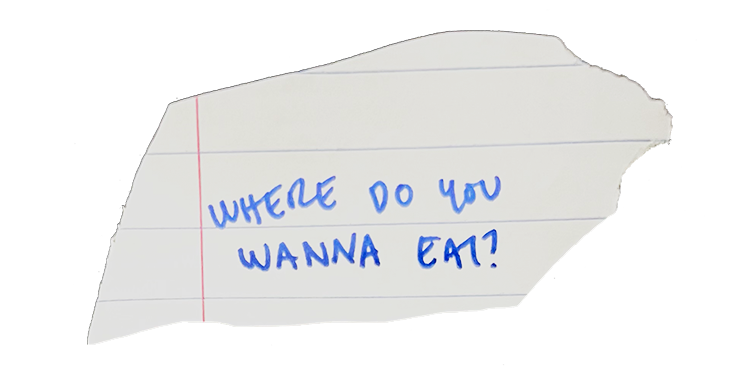 WHERE DO YOU
WANNA EAT?